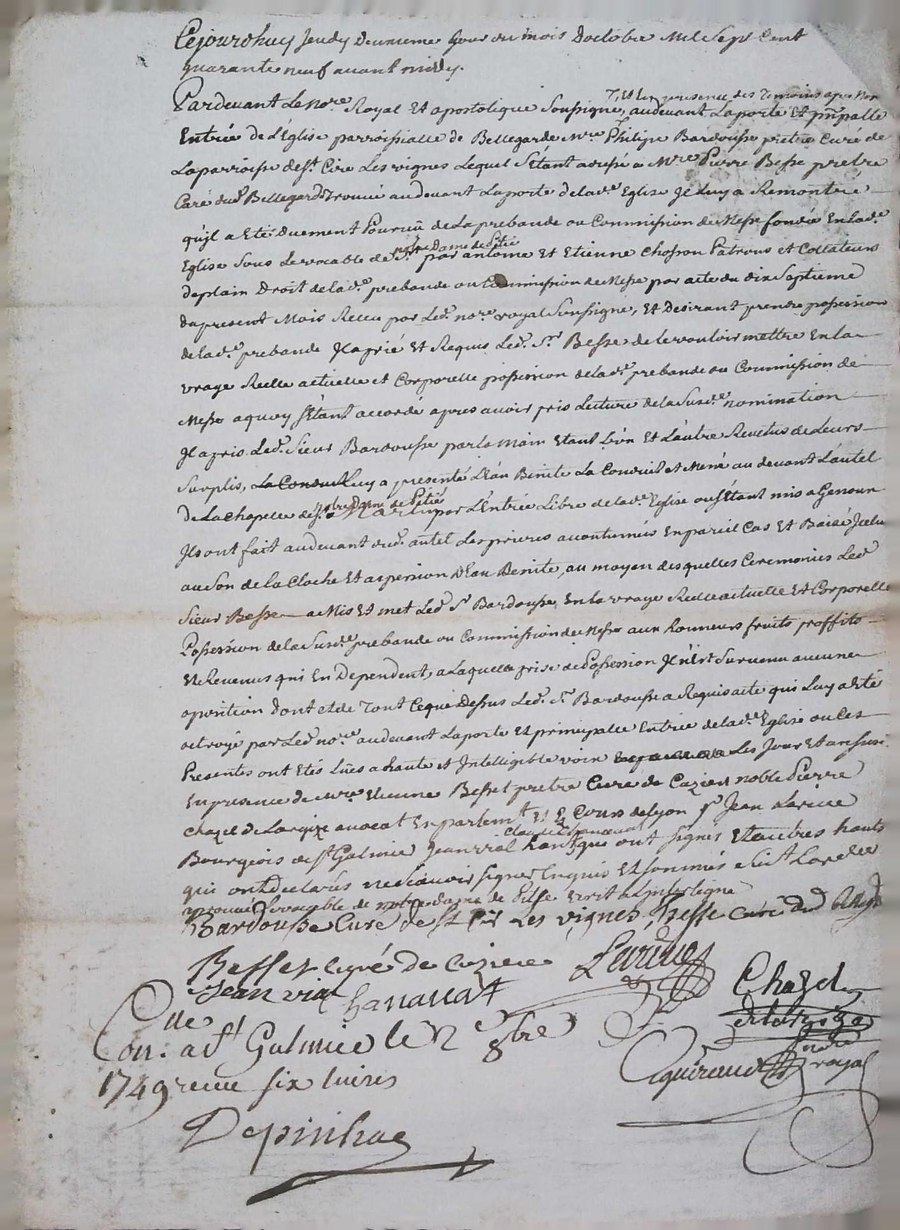 Cejourdhuy Jeudy Deuxieme Jour du mois Doctobre Mil Sept Cent
quarante neuf avant midy.
Pardevant Le nore Royal Et apostolique Soussigné, Et En presence des Temoins apres Nom audevant Laporte Et pnpalle
Entrée de L'Eglise parroissialle de Bellegarde Mre Philipe Bardousse pretre Curé de
Laparroisse de st Cire Les vignes Lequel S'Etant adressé a Mre Pierre Besse pretre
Curé dud Bellegarde trouvé audevant Laporte delade Eglise Jl Luy a Remontré
qu'jl a Eté Duement Pourvû de La prebande ou Commission de Messe fondée En lade
Eglise Sous Le vocable de notre Dame de Pitié par antoine et Etienne Chosson Patrons et Collateurs
deplain Droit de lade prebande ou Commission de Messe par acte du dix Septieme
du present Mois Receu par Led. nore royal Soussigné, Et Desirant prendre possession
de lade prebande Jl a prié Et Requis Led. Sr Besse de Le vouloir mettre En la
vraye Reelle actuelle et Corporelle possession de lade prebande ou Commission de
Messe a quoy s'Etant accordé apres avoir pris Lecture de la Susde nomination
Jl a pris Led. Sieur Bardousse par la Main Etant L'un Et L'autre Revetus de Leurs
Surplis, Luy a presenté L'Eau Benite La Conduit et Mené au devant L'autel
de La Chapelle de notre Dame de Pitié par L'Entrée Libre de lade Eglise ou S'Etant mis a Genoux
Jls ont fait audevant dud. autel Les prieres acoutumées En pareil Cas Et Baisé Jcelui
au Son de la Cloche Et aspersion D'Eau Benite, au moyen desquelles Ceremonies Led
Sieur Besse a Mis Et met Led. Sr Bardousse, En la vraye Reelle actuelle Et Corporelle
Possession de la Susde prebande ou Commission de Messe aux honneurs fruits proffits
Et Revenus qui En Dependent, a Laquelle prise de Possession Jl n'Est Survenu aucune
oposition dont et de Tout Ce que Dessus Led. Sr Bardousse a Requis acte qui Luy a Eté
octroyé par Led nore audevant La porte Et principalle Entrée de lade Eglise ou Ces
Presentes ont Etés Lües a haute et Jntelligible voix Les Jour Et an susd.
En presence de Mre Etienne Besset pretre Curé de noble Pierre
Chazel de avocat En parlemt Et Cours de Lyon Sr Jean
Bourgeois de st Galmie Jean vial Claude Chanavat que ont signés Et autres
qui ont declarés ne Scavoir signer Enquis Et sommés
de notre dame de
Bardousse Curé de st Cire Les vignes, Besse Curé dud
Besset Curé de
Jean vial Chanavat Chazel
Con. a st Galmie le 2e 8bre
1749 receu six livres
royal
Depinhac